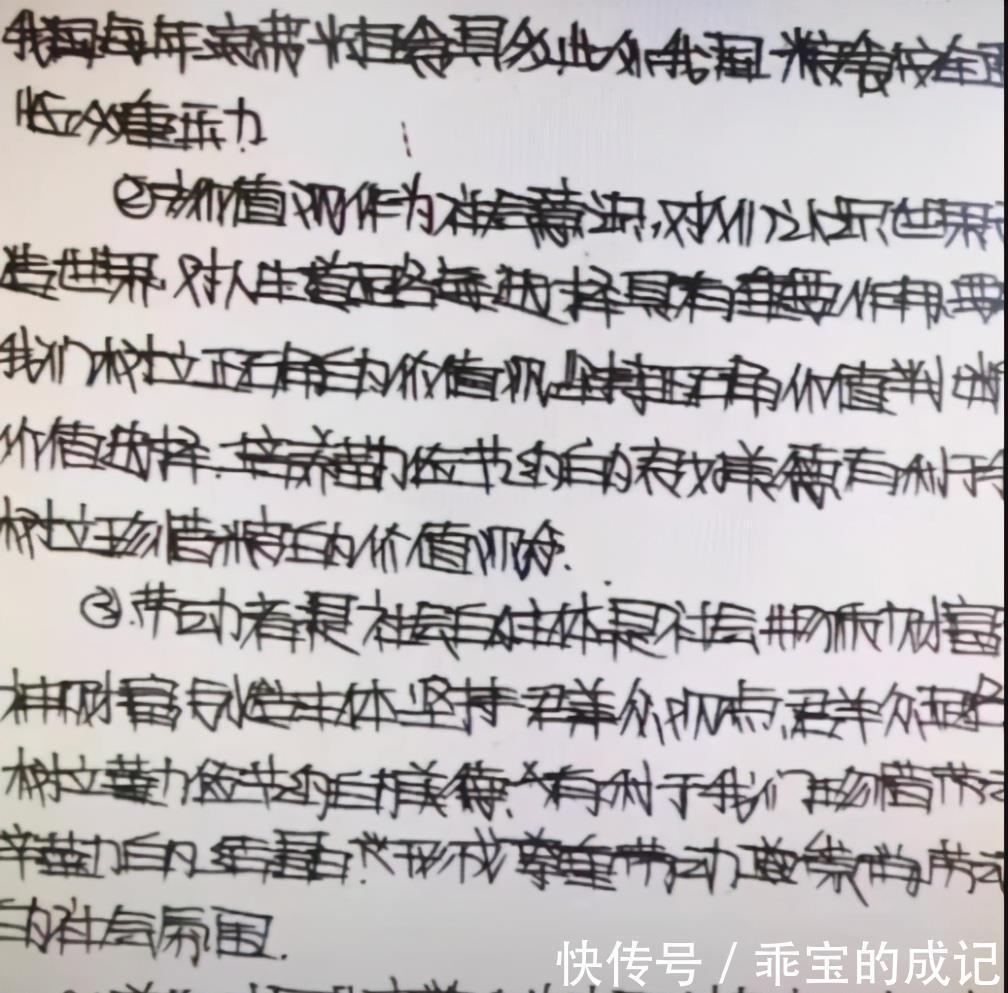 我国每年浪费粮食具多此外我国粮食安全面
临众重压力
②价值观作为社会意识,对们认识世界
造世界对人生道路每选择具有重要作用.要
我们树立正确的价值观坚持正确价值判断
价值选择.培养勤俭节约的我美德有利于
树立珍惜粮的价值观念.
③.劳动者是社会的主体是社会物质财富
神财富创造主体坚持群众观点,群众路
树立勤俭节约的美德,有利于我们珍惜劳
辛勤的结晶.形成尊重劳动崇尚劳动
的社会氛围.
快传号/乖宝的成记